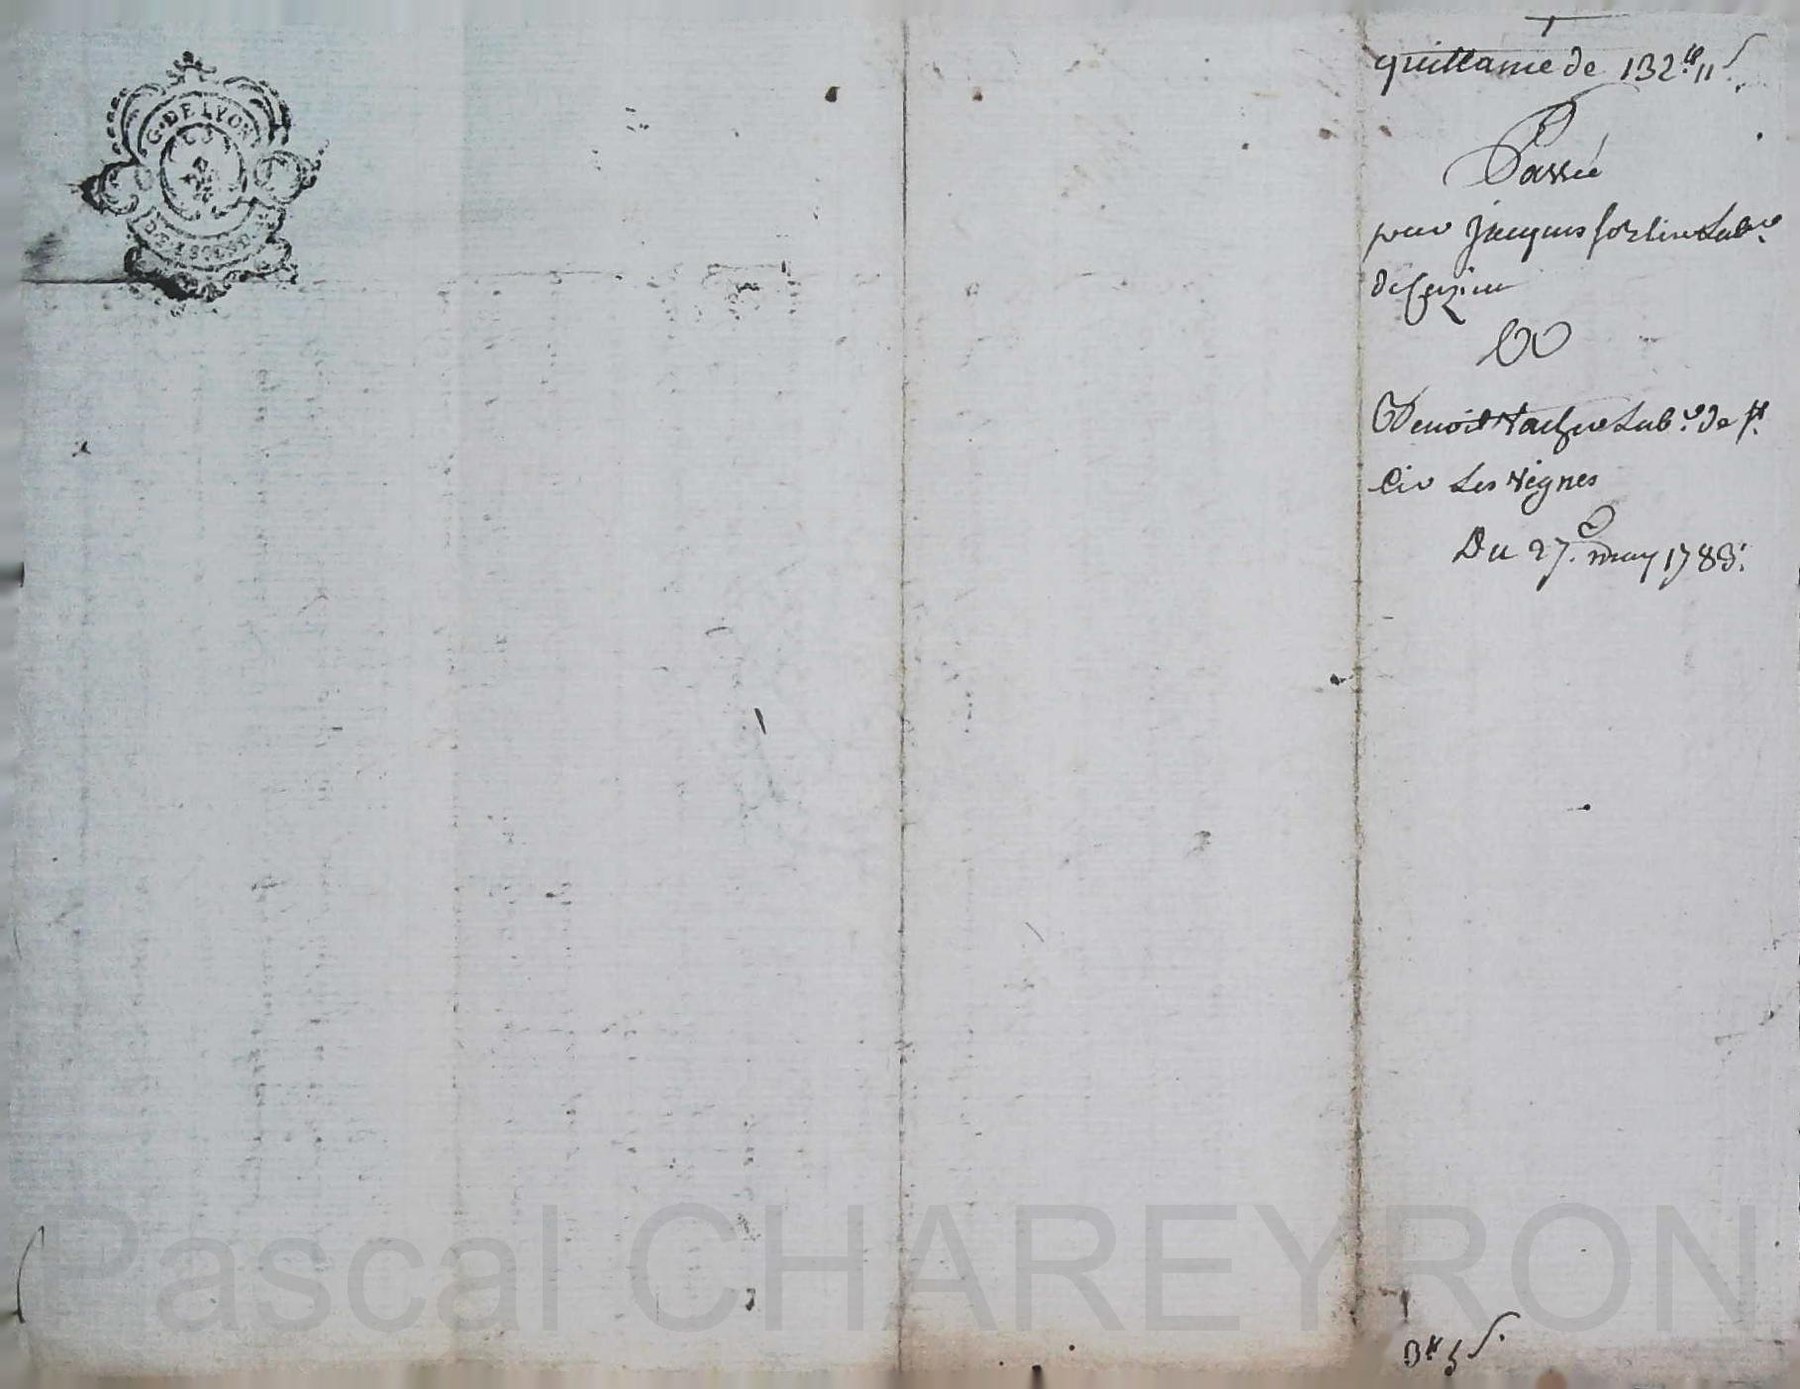 G. DE LYON
quittance de 132.lt 11 s.
Passée
pour jacques forlin Lab.r
de Cuzieu
A
Benoit Vacher Lab.r de St.
Cir Les Vignes
Du 27. may 1783.
3lt 5 s.
Pascal CHAREYRON